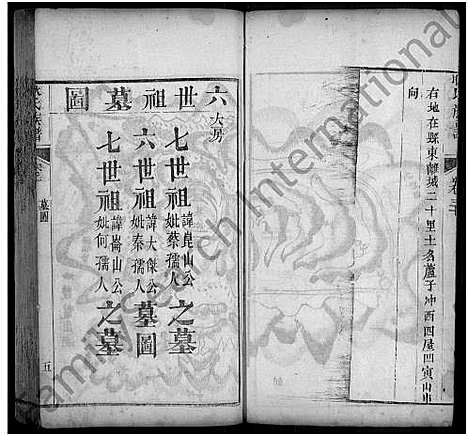 右地在縣東離城二十里土名蘆子冲西四屋凹寅山申
向
六世祖墓圖
大房
七世祖諱崑山公妣蔡孺人之墓
六世祖諱大傑公妣秦孺人墓圖
七世祖諱崙山公妣何孺人之墓
氏族譜
墓圖
五
FamilySearch International